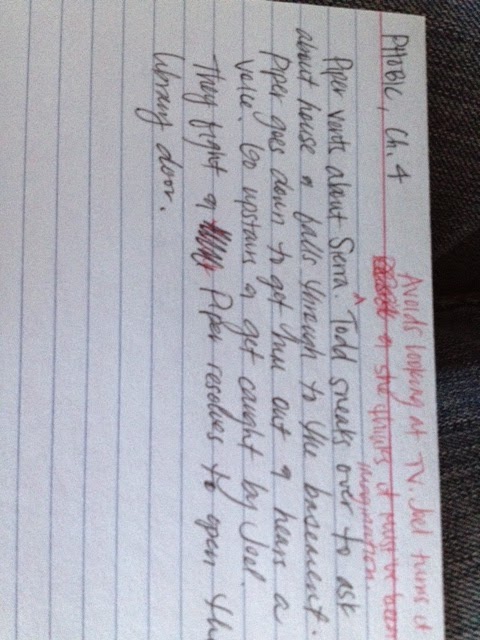 Avoids looking at TV. Joel turns it
PHOBIC, Ch. 4
& she thinks it must've been
imagination.
Piper vents about Sierra. ^ Todd sneaks over to ask
about house & falls through to the basement.
Piper goes down to get him out & hears a
voice. Go upstairs & get caught by Joel.
They fight & Piper resolves to open the
library door.